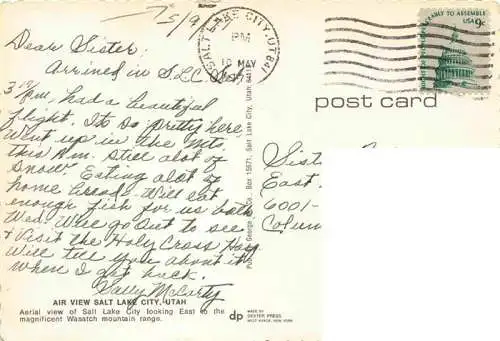 5/9/
Dear Sister:
Arrived in S.L.C. Sat.
3 P.M., had a beautiful
flight. It's so pretty here,
Went up in the Mts.
this A.m. Still alot of
snow. Eating alot of
home bread. Will eat
enough fish for us both
Wed. Will go out to see
& Visit the Holy Cross
Will tell you about it
when I get back.
Sally McCarty
AIR VIEW SALT LAKE CITY, UTAH
Aerial view of Salt Lake City looking East to the
magnificent Wasatch mountain range.
SALT LAKE CITY, UT 841
PM
10 MAY
ERLY TO ASSEMBLE
USA 9c
post card
Box 15671, Salt Lake City, Utah
Sist
East
6001-
Colum
dp
MADE BY
DEXTER PRESS
WEST NYACK, NEW YORK